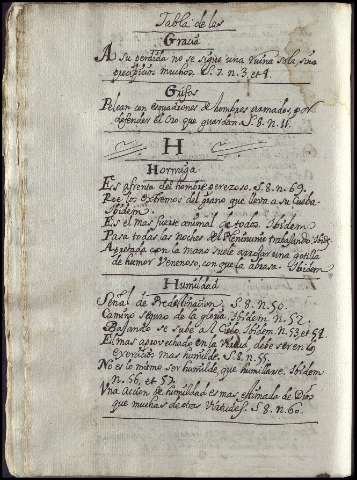 Tabla de las
Gracia
A su perdida no se sigue una ruina sola, sino
precipicios muchos. S. 7. n. 3. et 4.
Grifos
Pelean con esquadrones de hombres armados, por
defender el Oro que guardan. S. 8. n. 11.
H
Hormiga
Es afrenta del hombre perezoso. S. 8. n. 69.
Roe los extremos del grano que lleva a su Cueba.
Ibidem.
Es el mas fuerte animal de todos. Ibidem
Pasa todas las noches del Plenilunio trabajando. Ibid.
Apretada con la mano suele arrojar una gotilla
de humor Venenoso, con que la abrasa. Ibidem
Humildad
Señal de Predestinacion. S. 8. n. 50.
Camino seguro de la gloria. Ibidem. n. 52.
Bajando se sube al Cielo. Ibidem. n. 53. et 54.
El mas aprovechado en la Virtud debe ser en los
exercicios mas humilde. S. 8. n. 55.
No es lo mismo ser humilde, que humillarse. Ibidem
n. 56. et 57.
Una accion de humildad es mas estimada de Dios
que muchas de otras Virtudes. S. 8. n. 60.